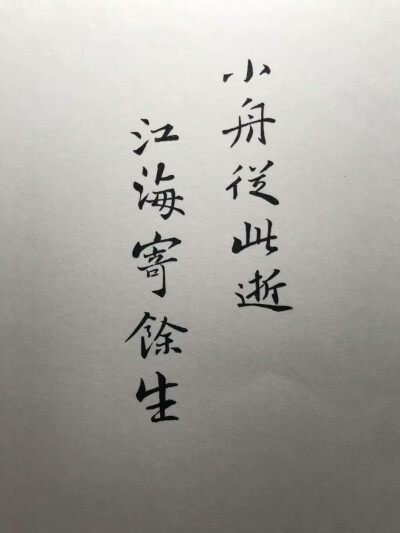 小舟從此逝
江海寄餘生